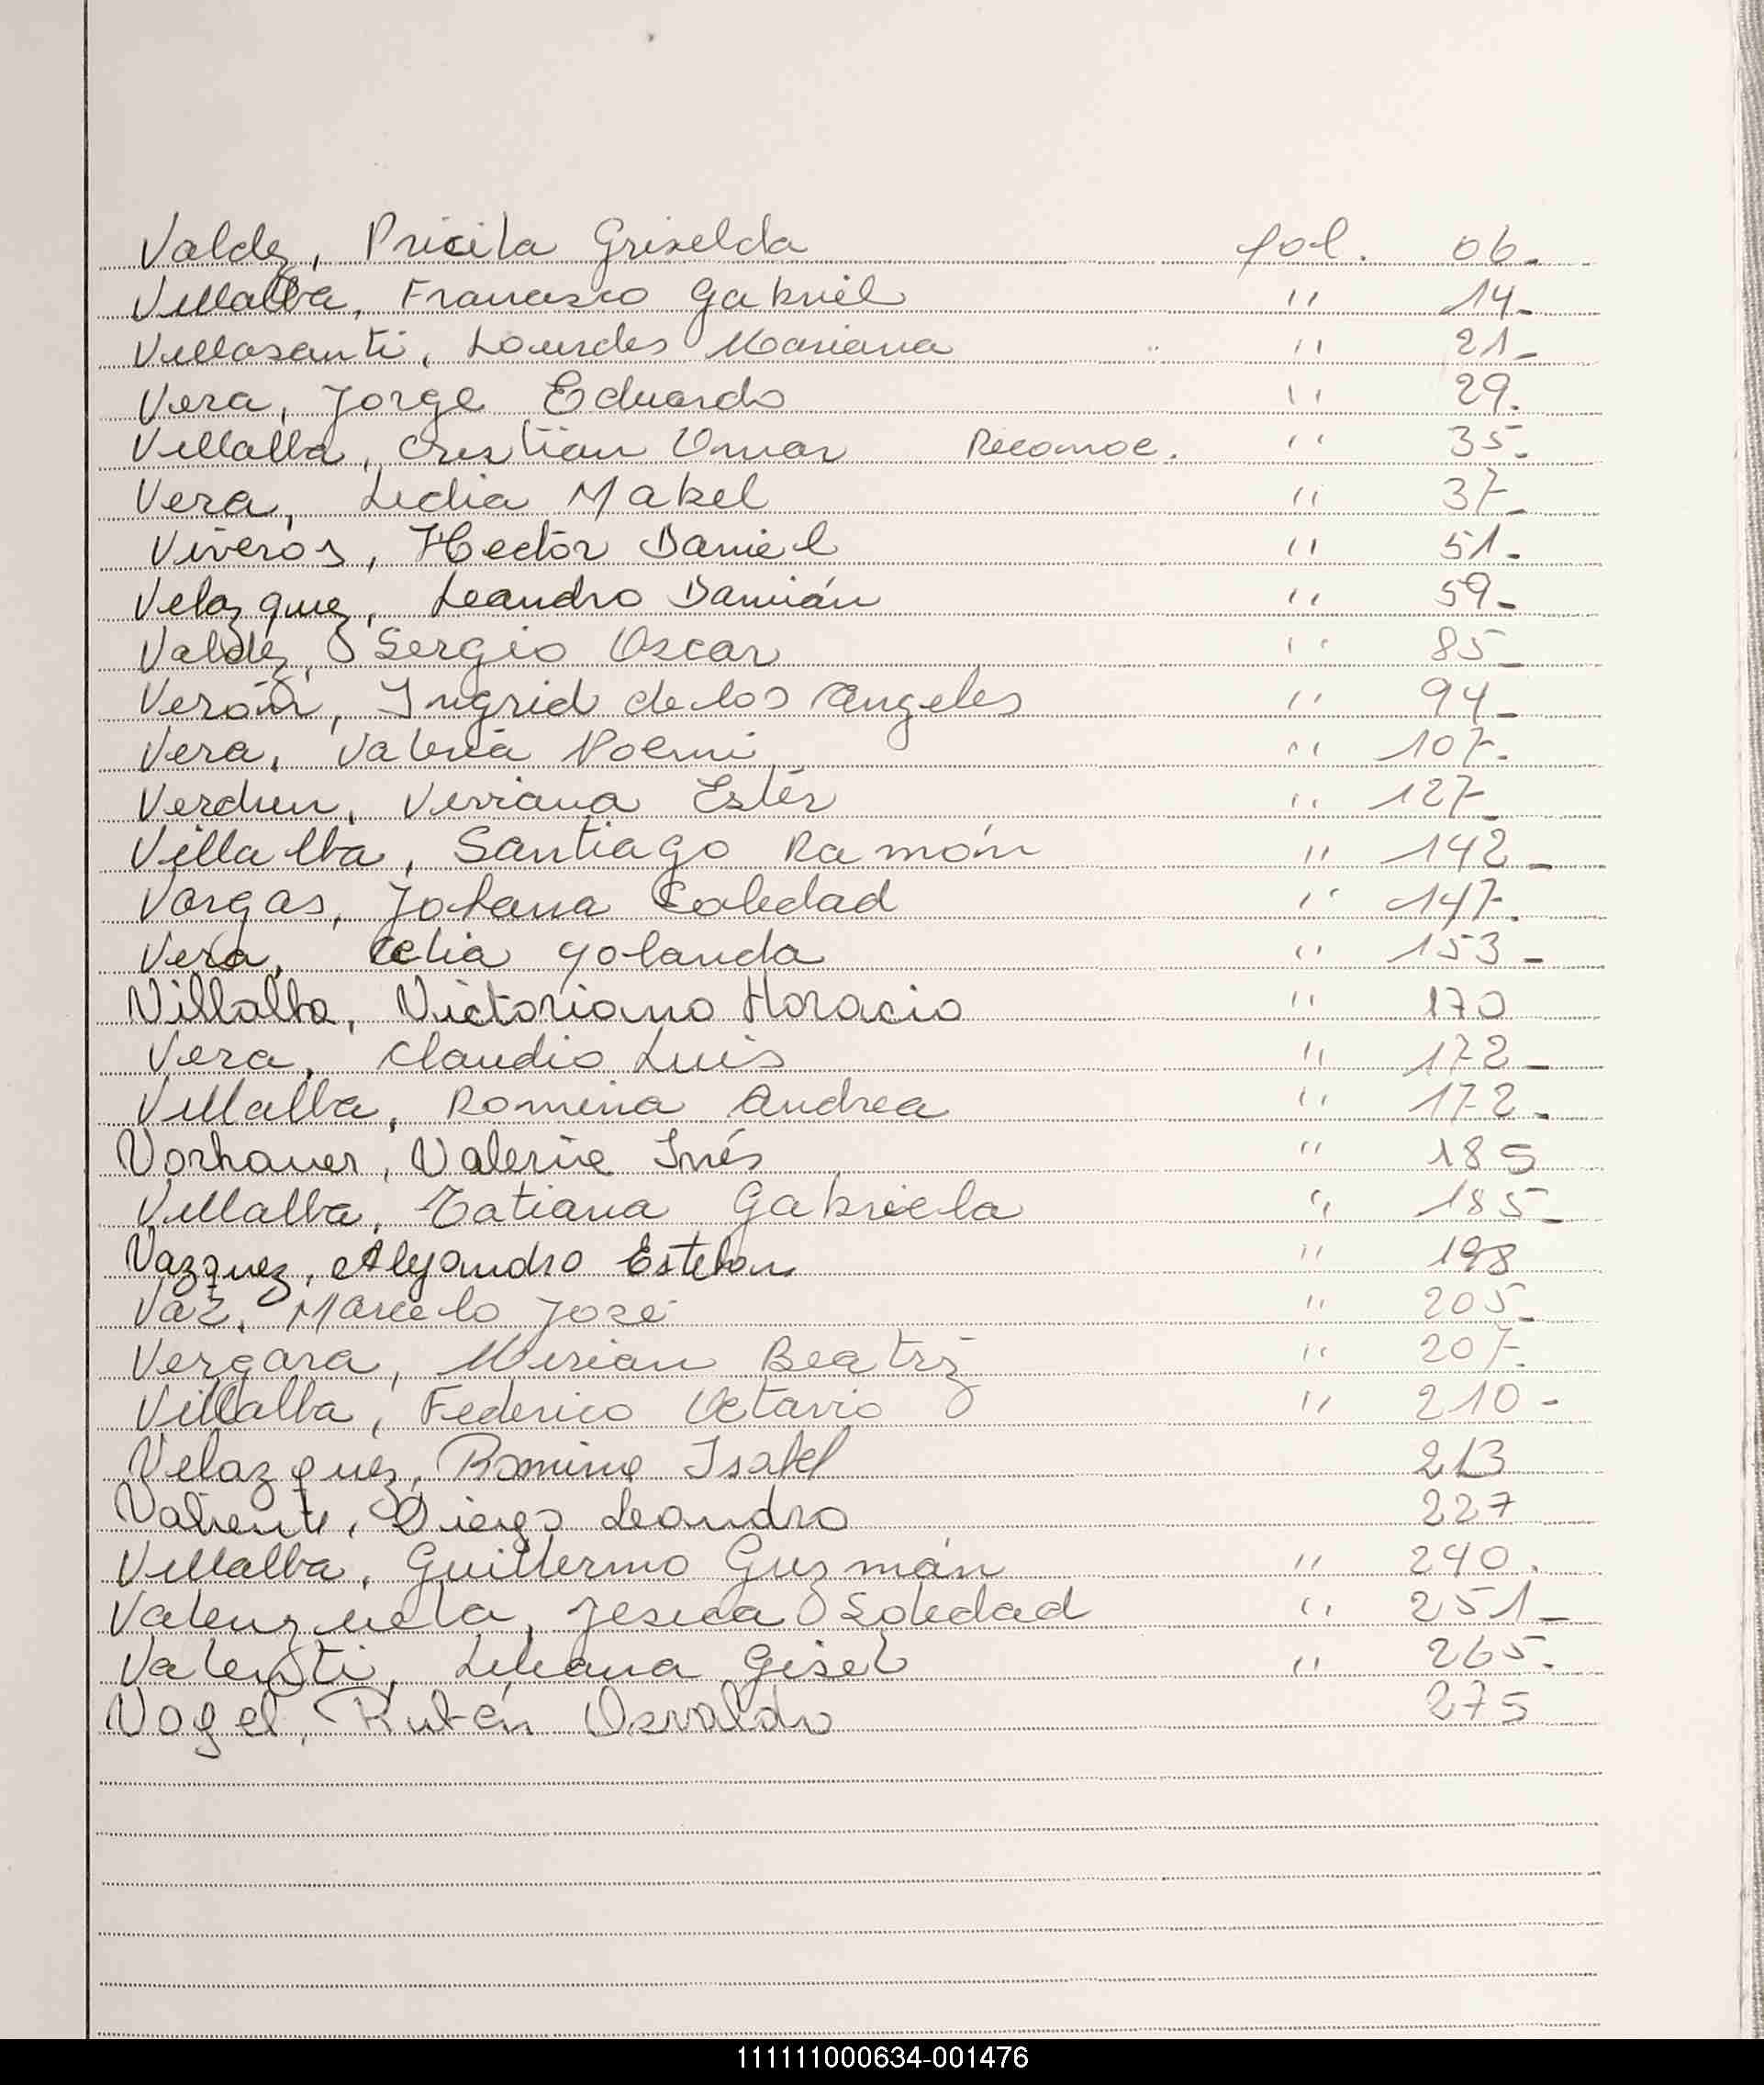 Valdez, Pricila Griselda fol. 06.-
Villalba, Francisco Gabriel " 14-
Villasanti, Lourdes Mariana " 21-
Vera, Jorge Eduardo " 29.
Villalba, Cristian Omar Reconoc. " 35.-
Vera, Lidia Mabel " 37-
Viveros, Hector Daniel " 51.-
Velazquez, Leandro Damián " 59-
Valdez, Sergio Oscar " 85-
Verón, Ingrid de los Angeles " 94-
Vera, Valeria Noemi " 107-
Verdun, Viviana Ester " 127-
Villalba, Santiago Ramón " 142-
Vargas, Johana Soledad " 147.
Vera, Celia Yolanda " 153-
Villalba, Victoriano Horacio " 170
Vera, Claudio Luis " 172-
Villalba, Romina Andrea " 172-
Vorhauer, Valeria Inés " 185
Villalba, Tatiana Gabriela " 185-
Vazquez, Alejandro Esteban " 198
Vaz, Marcelo José " 205-
Vergara, Mirian Beatriz " 207-
Villalba, Federico Octavio " 210-
Velazquez, Romina Isabel 213
Valiente, Diego Leandro 227
Villalba, Guillermo Guzmán " 240.
Valenzuela, Jesica Soledad " 251-
Valenti, Liliana Gisel " 265.
Vogel, Rubén Osvaldo 275
111111000634-001476